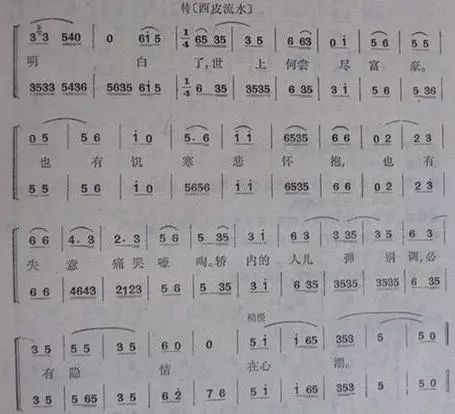 转〔西皮流水〕
3 3 540 | 0 6i5 | 1/4 65 35 | 3 5 | 6 63 | 0 i | 5 6 | 5 5 |
明 白 了,世 上 何尝 尽 富 豪。
3533 5436 | 5635 6i5 | 1/4 6 35 | 3535 | 6 35 | 3 i | 5 6 | 5 35 |
0 5 | 5 6 | i 0 | 5·6 | i i | 6535 | 6 6 | 0 2 | 2 3 |
也 有 饥 寒 悲 怀 抱, 也 有
5 5 | 5 6 | i 0 | 5656 | i i | 6535 | 6 6 | 0 2 | 2 3 |
6 6 | 4·3 | 2·3 | 5 6 | 5 35 | 3 i | 6 3 | 3 35 | 3 5 | 6 3 |
失 意 痛哭 嚎 啕。轿 内的 人儿 弹 别 调,必
6 6 | 4643 | 2123 | 5 6 | 5 35 | 3 i | 6 35 | 3535 | 3535 | 6 35 |
稍慢
3 5 | 5 5 | 3 5 | 6 0 | 0 | 5 i | i 65 | 353 | 5 | 5 0 ‖
有 隐 情 在心 潮。
3 5 | 5 65 | 3 5 | 6 2 | 7 6 | 5 i | i 65 | 353 | 5 | 5 0 ‖